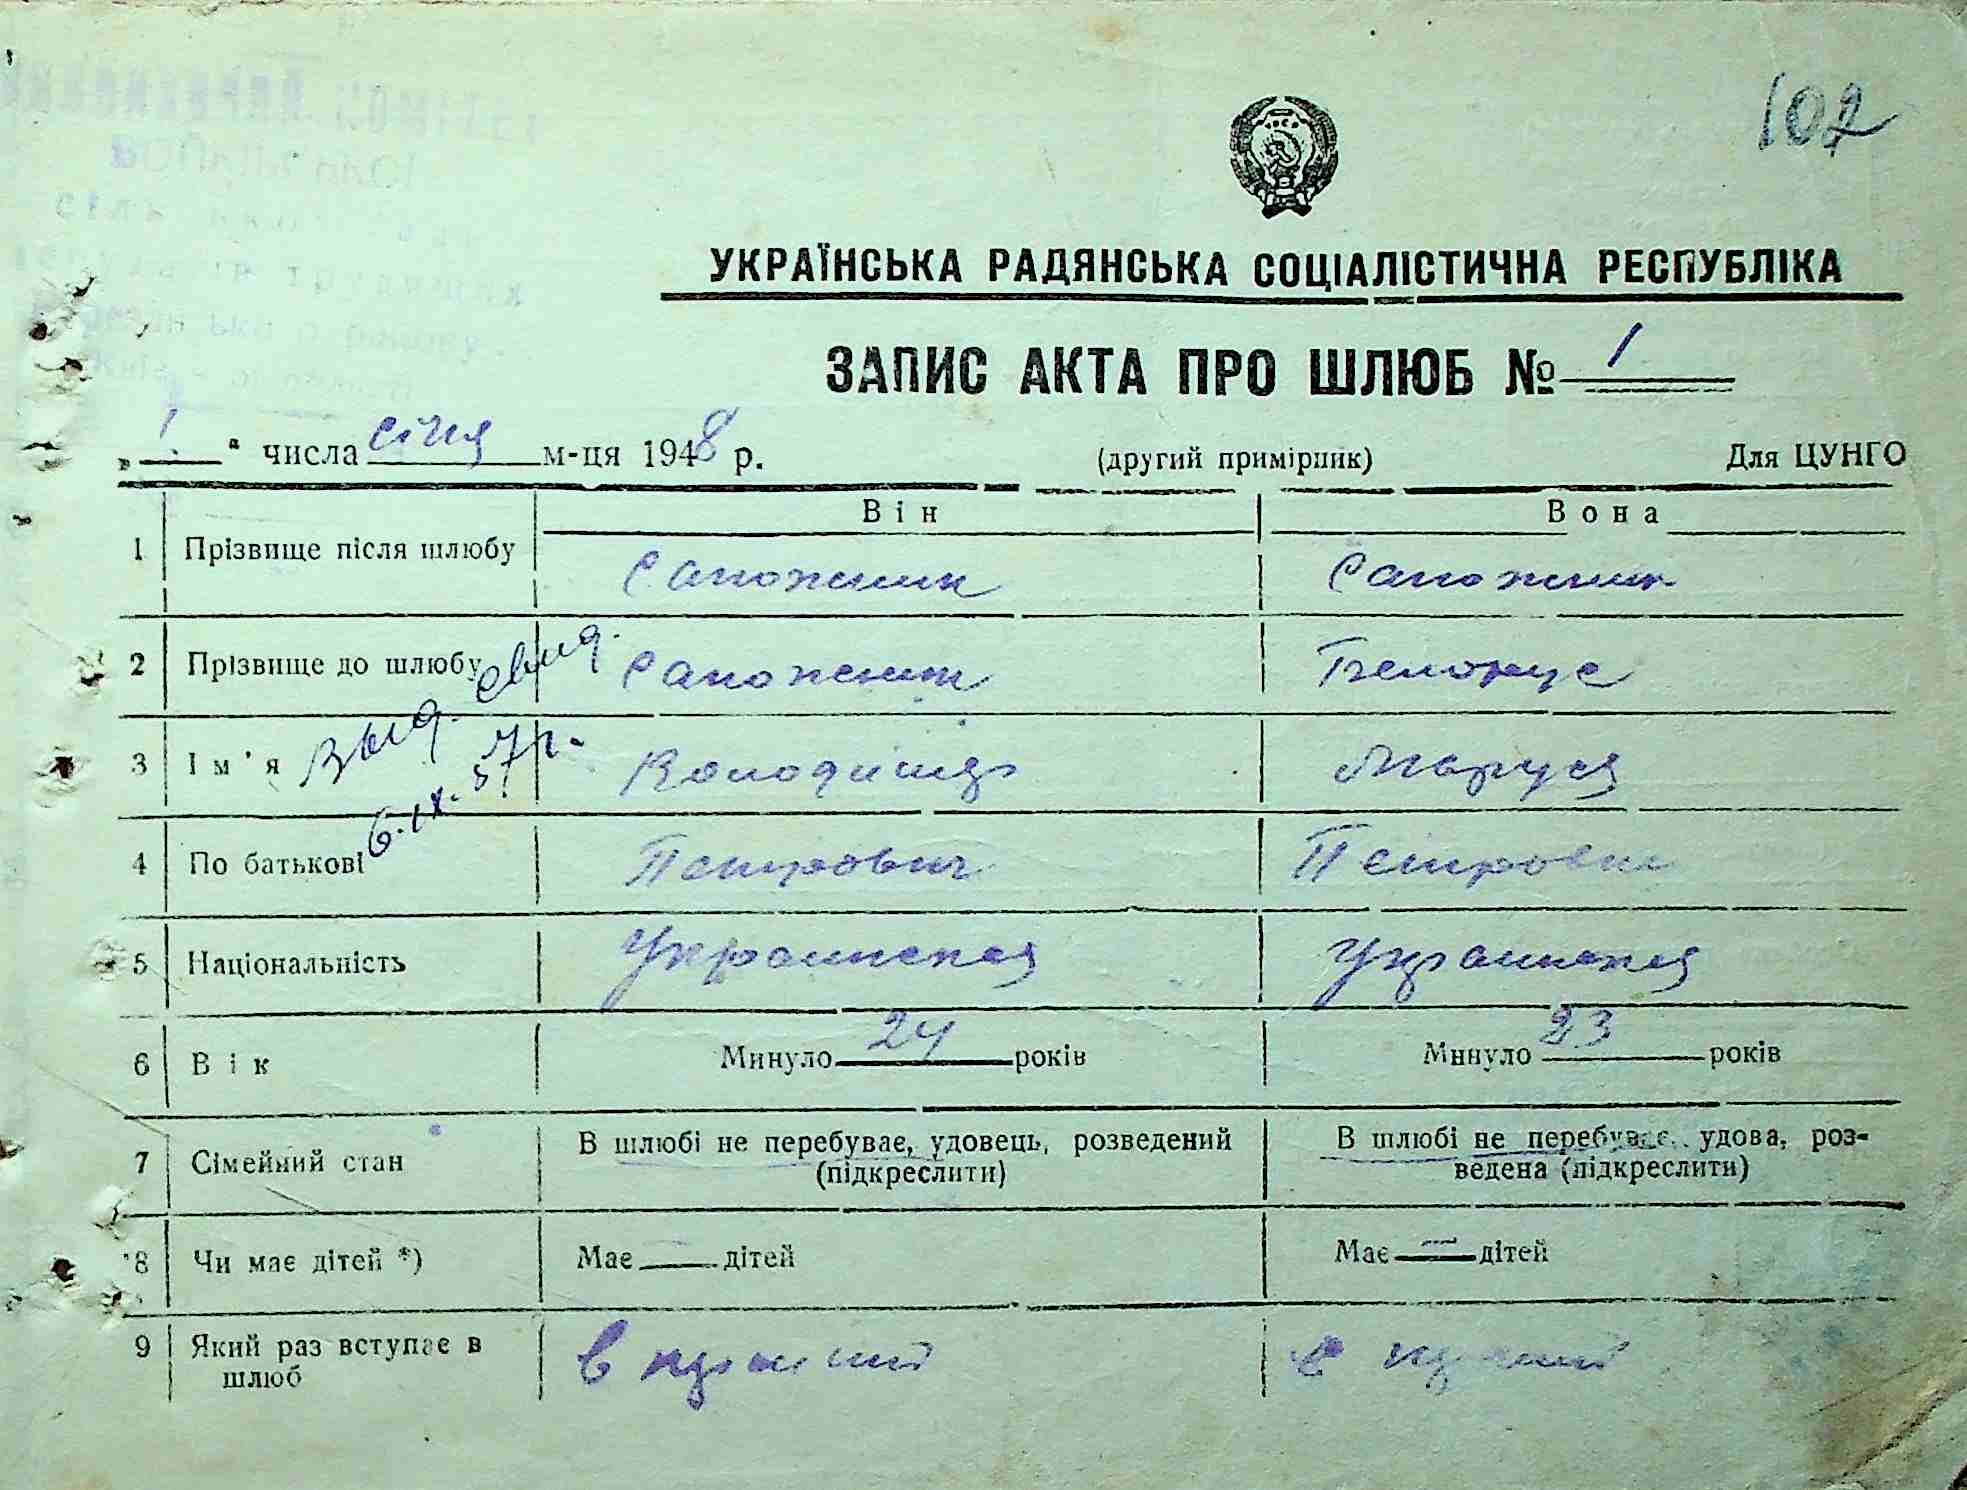 102
УКРАЇНСЬКА РАДЯНСЬКА СОЦІАЛІСТИЧНА РЕСПУБЛІКА
ЗАПИС АКТА ПРО ШЛЮБ № 1
„ 1 " числа січня м-ця 1948 р. (другий примірник) Для ЦУНГО
Він Вона
1 Прізвище після шлюбу Сапожник Сапожник
2 Прізвище до шлюбу Сапожник Белоус
Выд. свид.
6.IX.57 г.
3 Ім'я Володимир Маруся
4 По батькові Петрович Петровна
5 Національність Украинская Украинская
6 Вік Минуло 24 років Минуло 23 років
7 Сімейний стан В шлюбі не перебуває, удовець, розведений В шлюбі не перебуває, удова, роз-
(підкреслити) ведена (підкреслити)
8 Чи має дітей *) Має — дітей Має — дітей
9 Який раз вступає в шлюб в первий в первий